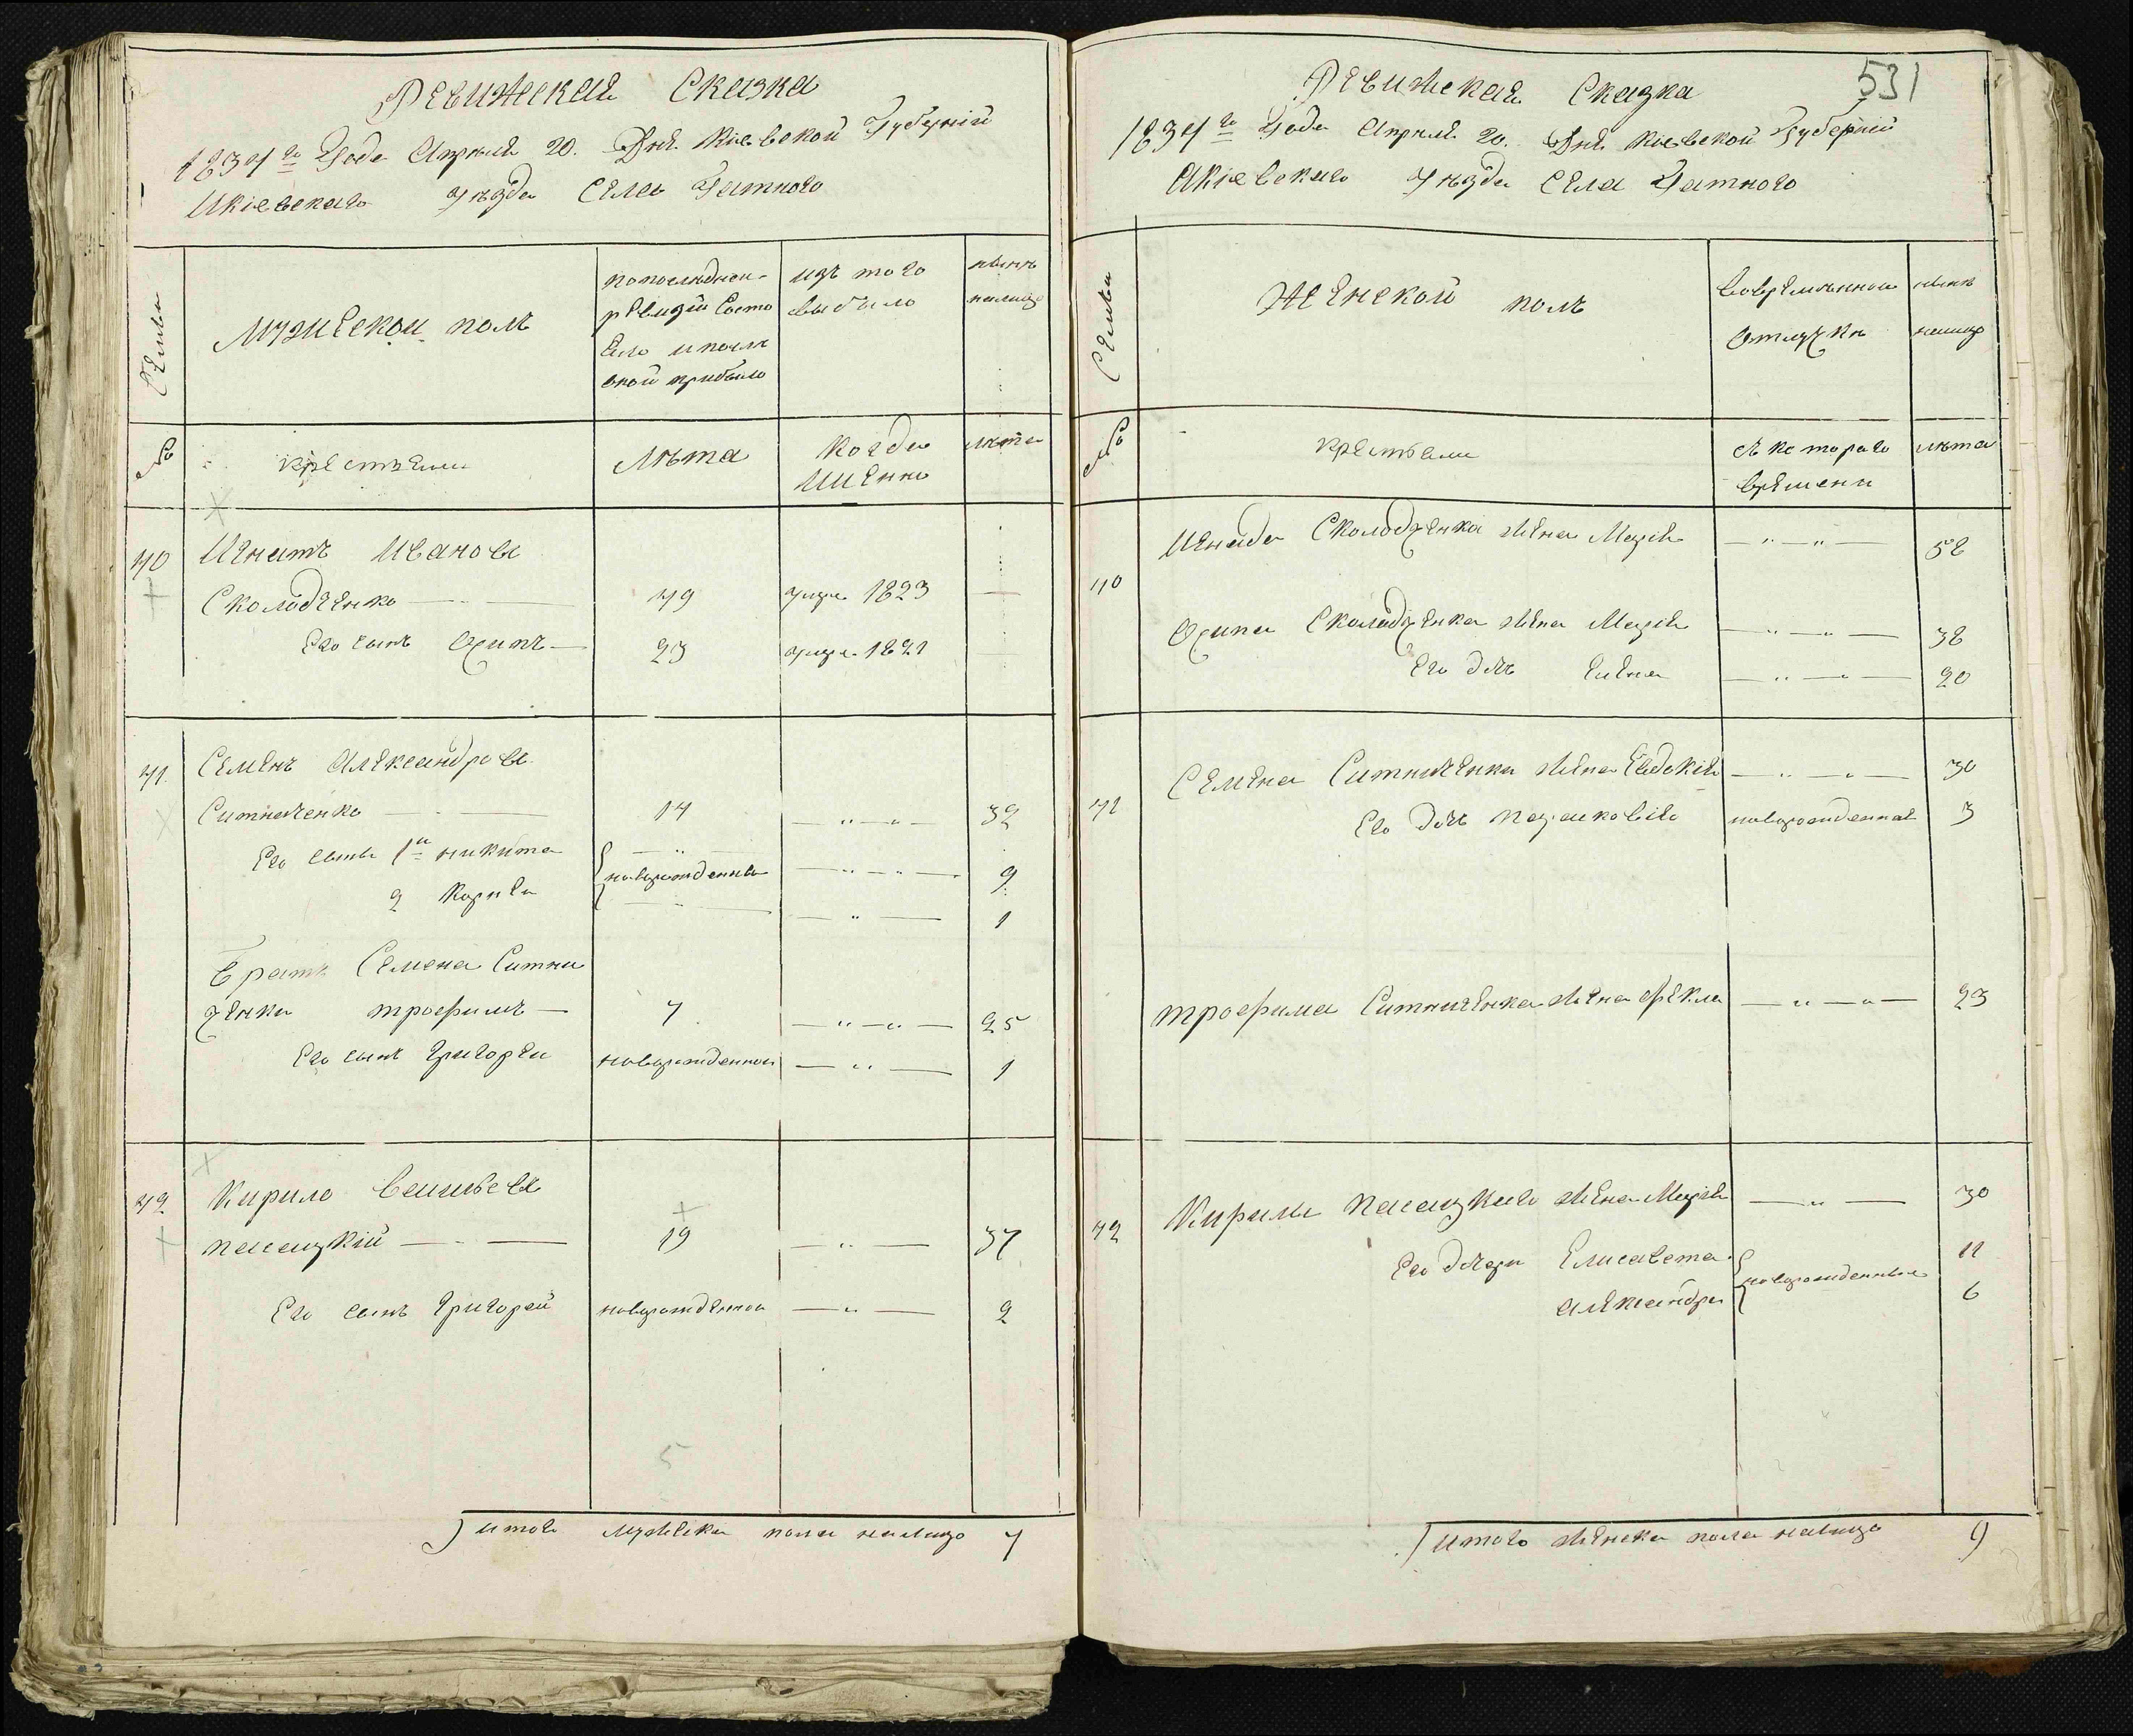 Ревижская Сказка
1834го Года Апреля 20. Дня Киевской Губернии
Икиевскаго Уезда Села Гатного
Семьи
Мужеской полъ
попоследнеи
ревизіи Состо
яло ипосле
оной прибыло
изъ того
выбыло
ныне
налицо
№
крестьяни
Лета
Когда
Имянно
лета
40
Игнатъ Ивановъ
Сколодченко
49
умре 1823
Его сынъ Осипъ
23
умре 1821
41
Семенъ Александровъ
Ситниченко
14
32
Его сыны 1й никита
новорожденны
9
2 Корней
1
Братъ Семена Ситни
ченка трофимъ
7
25
Его сынъ Григореи
новорожденнои
1
42
Кирило Васильевъ
19
37
Его сынъ Григорей
новорожденнои
2
5
итого мужеска пола налицо 7
531
Ревижская Сказка
1834го Года Апреля 20. Дня Киевской Губернии
Икиевскаго Уезда Села Гатного
Семьи
Женской полъ
Вовременной
отлучке
ныне
налицо
№
крестьяни
съ котораго
времени
лета
40
Игната Сколодченка жена Марія
58
Осипа Сколодченка жена Марія
38
Его дочь Елена
20
41
Семена Ситниченка жена Евдокія
30
Его дочь Парасковія
новорожденная
3
трофима Ситниченка жена фекла
23
42
Кирилы жена Марія
30
Его дочери Елисавета
новорожденные
11
александра
6
итого женска пола налицо 9